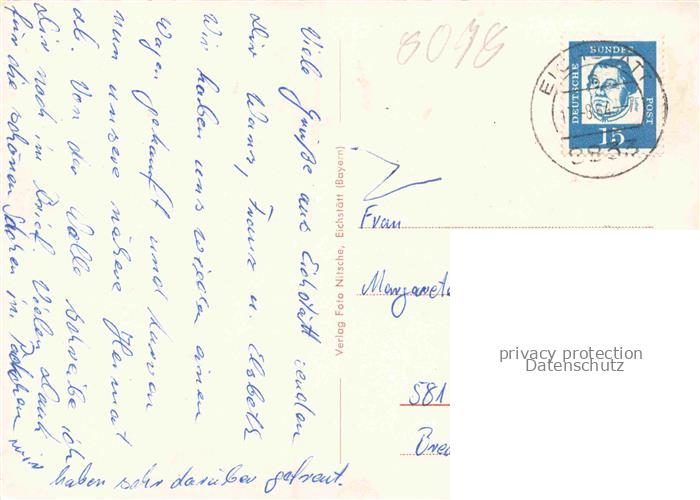 Viele Grüße aus Eichstätt senden
Dir Hans, Franz u. Elsbeth
Wir haben uns wieder einen
Wagen gekauft und
nun unsere nähere Heimat
ab. Von der Wolle schreibe ich
Dir noch im Brief. Vielen Dank
für die schönen Sachen im Päckchen wir
haben sehr darüber gefreut.
Verlag Foto Nitsche, Eichstätt (Bayern)
8078
DEUTSCHE BUNDESPOST
15
EICHSTÄTT
8833
Frau
Margarete
581
privacy protection
Datenschutz